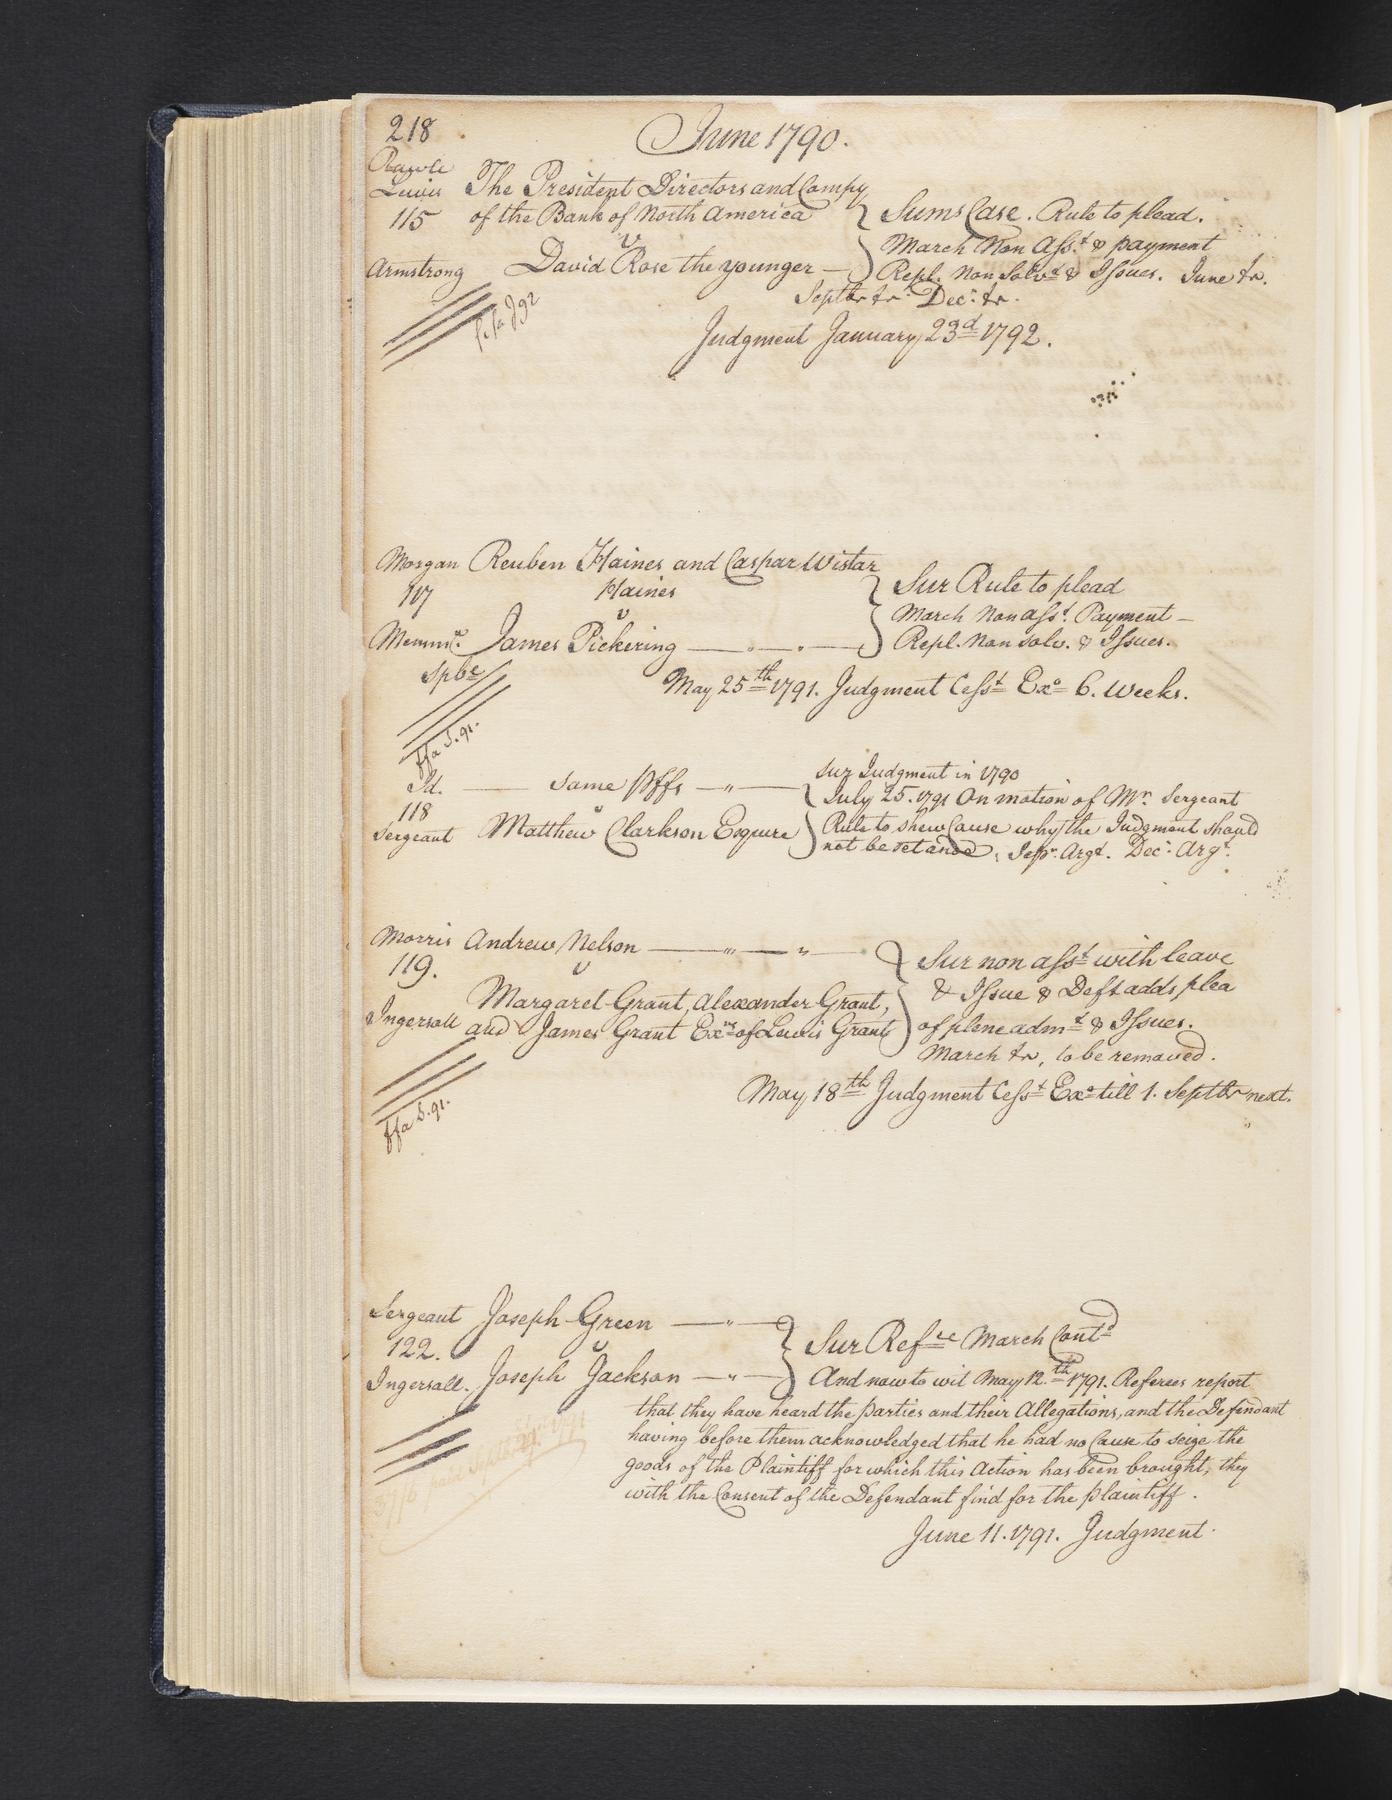 218
June 1790.
Rawle
Lewis The President Directors and Compy
115 of the Bank of North America
v
Armstrong David Rose the younger
Sums Case. Rule to plead.
March Non Asst. & payment
Repl. Non Solvt & Issues. June tr.
Septbr tr. Decr. tr.
fi fa J 92
Judgment January 23d 1792.
Morgan Reuben Haines and Caspar Wistar
117 Haines
v
James Pickering
Sur Rule to plead
March Non asst. Payment
Repl. Non solv. & Issues.
Spbe
May 25th 1791. Judgment Cesst Exo 6. Weeks.
ffa S. 91.
Id. Same Pffs
118 v
Sergeant Matthew Clarkson Esquire
Sur Judgment in 1790
July 25. 1791 On motion of Mr. Sergeant
Rule to shew Cause why the Judgment should
not be set aside. Sepr. Argt. Decr. Argt.
Morris Andrew Nelson
119. v
Margaret Grant, Alexander Grant,
Ingersoll and James Grant Exrs of Lewis Grant
Sur non asst with leave
& Issue & Deft adds plea
of plene admt & Issues.
March tr, to be removed.
May 18th Judgment Cesst Exo till 1. Septbr next.
ffa S. 91.
Sergeant Joseph Green
122. v
Ingersoll. Joseph Jackson
Sur Refce March Contd
And now to wit May 12th 1791. Referees report
that they have heard the parties and their Allegations, and the Defendant
having before them acknowledged that he had no Cause to seize the
goods of the Plaintiff for which this Action has been brought, they
with the Consent of the Defendant find for the plaintiff.
June 11. 1791. Judgment.